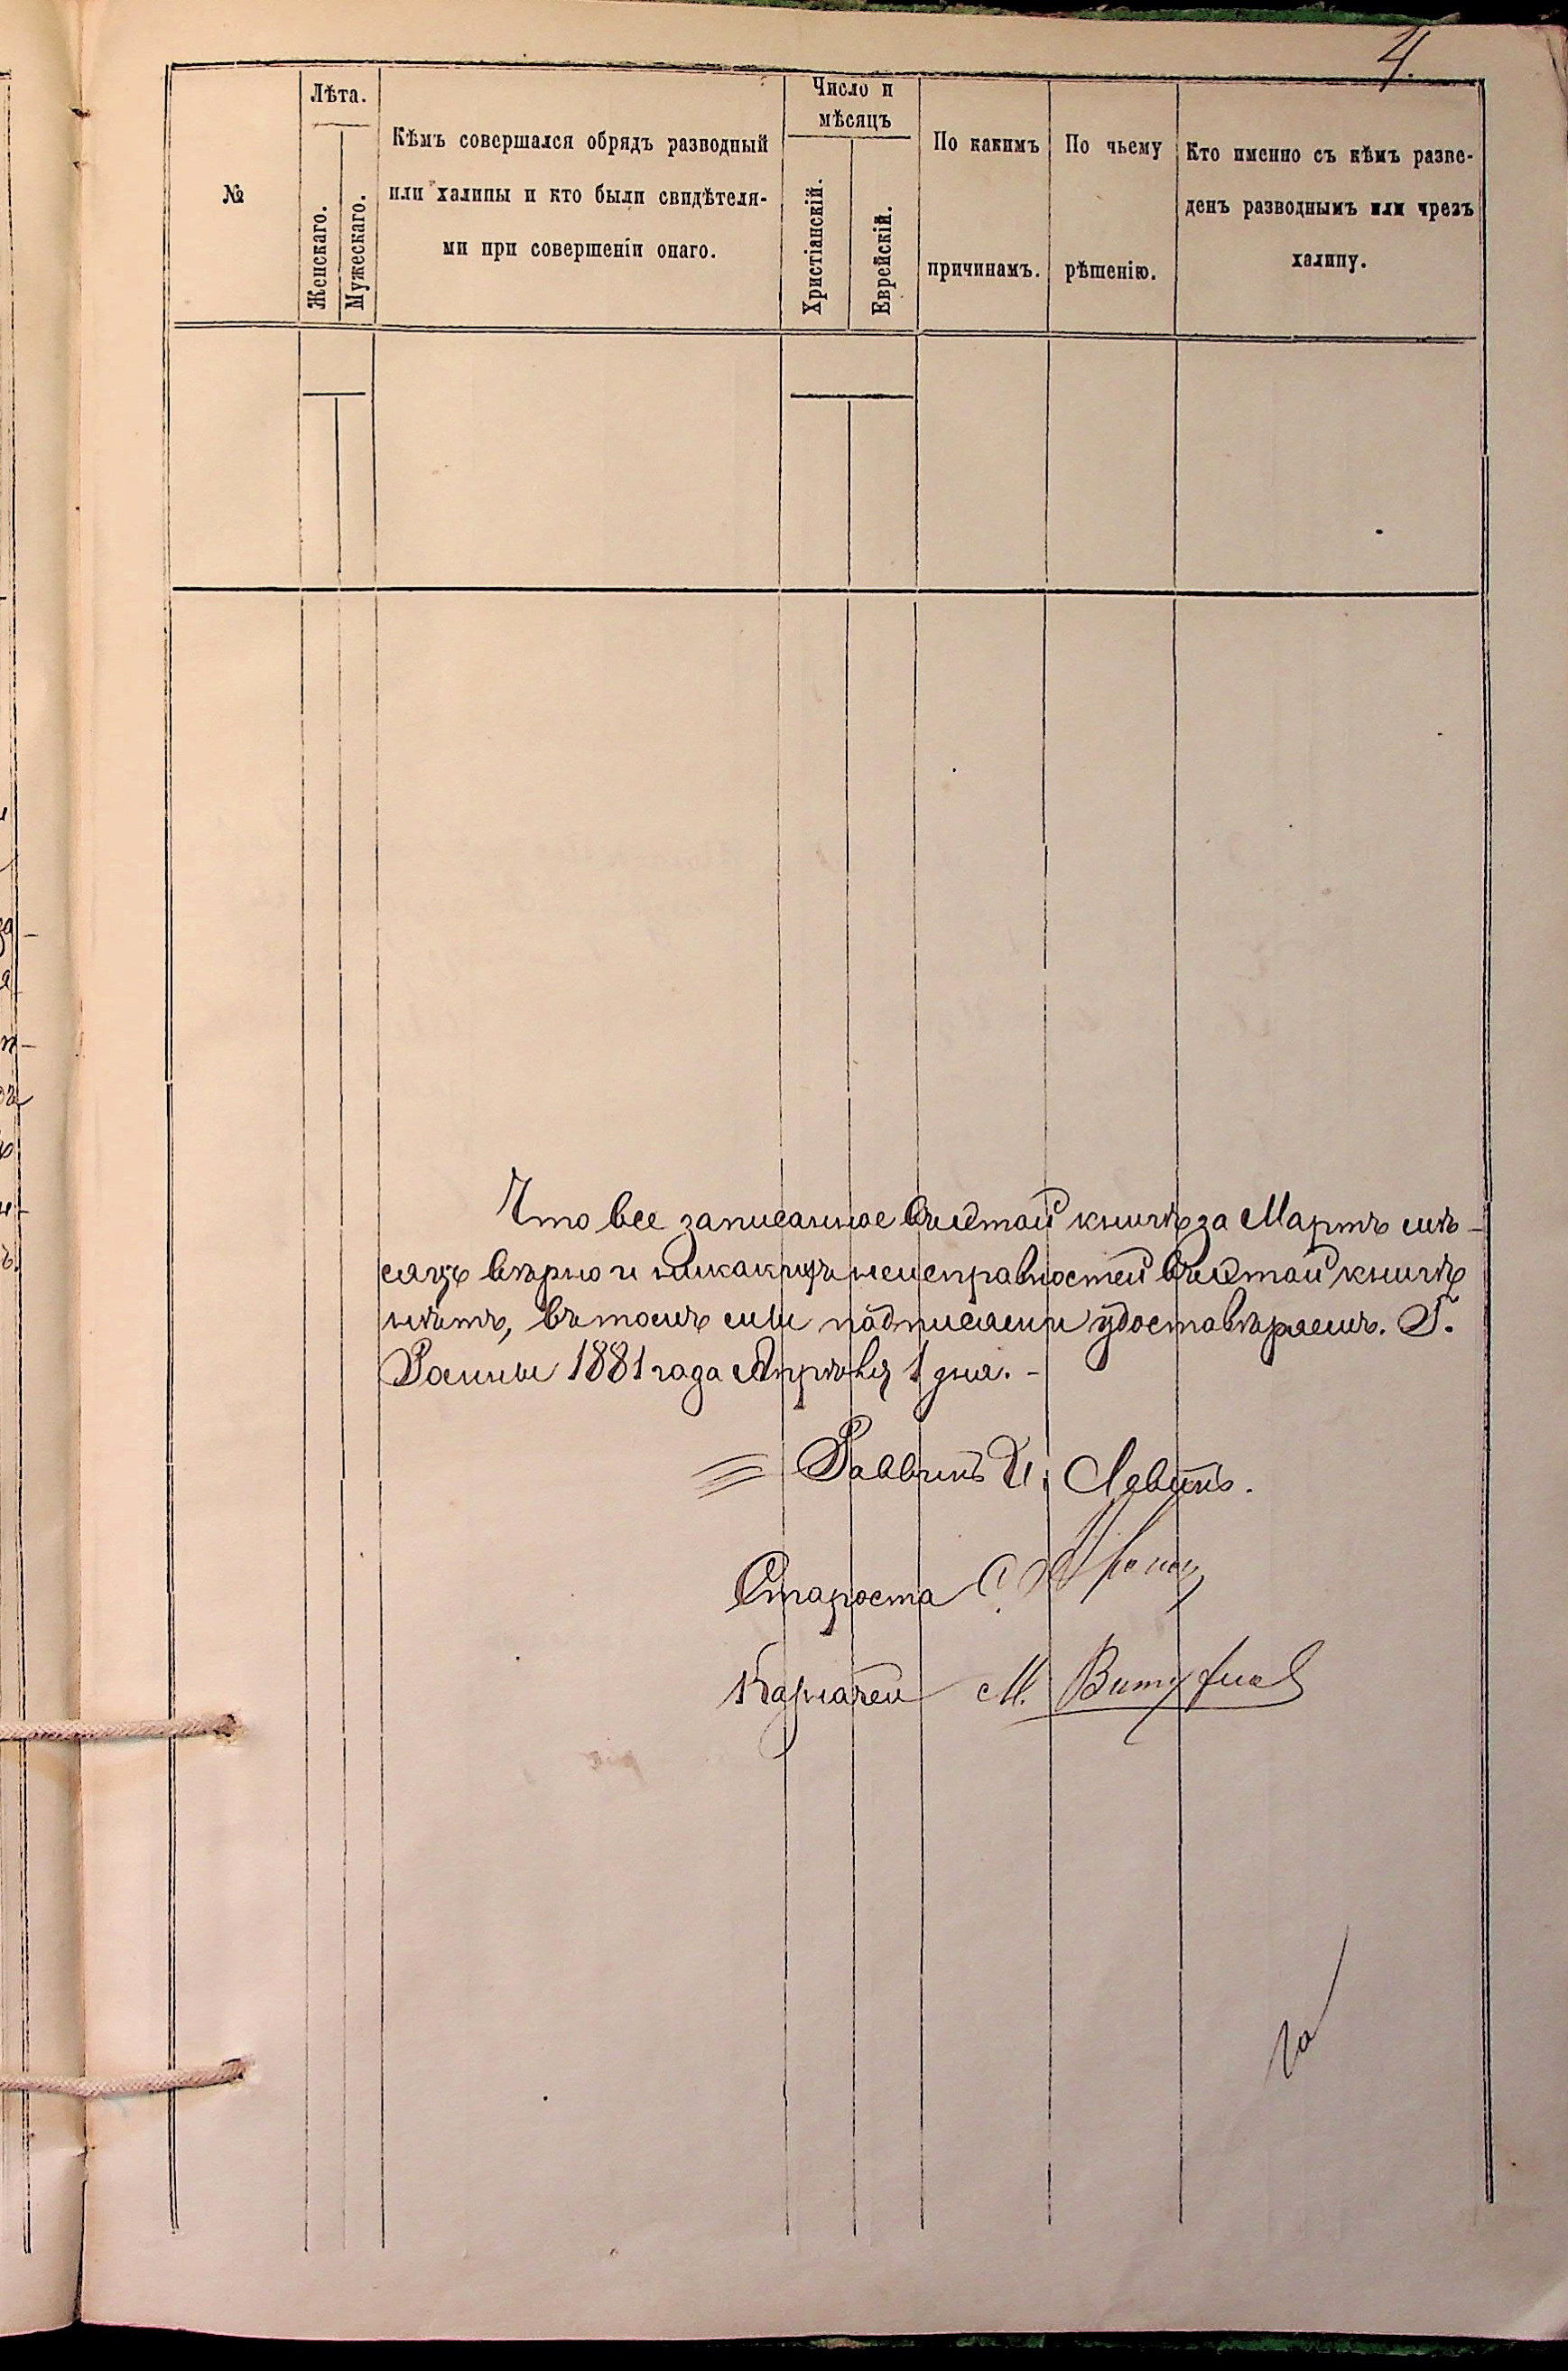 4.
№
Лѣта.
Женскаго.
Мужескаго.
Кѣмъ совершался обрядъ разводный
или халицы и кто были свидѣтеля-
ми при совершеніи онаго.
Число и
мѣсяцъ
Христіанскій.
Еврейскій.
По какимъ
причинамъ.
По чьему
рѣшенію.
Кто именно съ кѣмъ разве-
денъ разводнымъ или чрезъ
халицу.
Что все записанное въ этой книгѣ за Мартъ мѣ-
сяцъ вѣрно и никакихъ неисправностей въ этой книгѣ
нѣтъ, въ томъ мы подписями удостовѣряемъ. Г.
Ромны 1881 года Апрѣля 1 дня. -
Раввинъ И. Левинъ.
Староста С.
Казначей М.